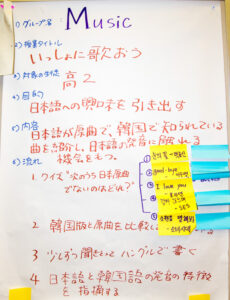 1) グループ名 Music
2) 授業タイトル
いっしょに歌おう
3) 対象の生徒 高2
4) 目的
日本語への興味を引き出す
5) 内容
日本語が原曲で、韓国で知られている
曲を紹介し、日本語の発音に触れる
機会をもつ。
6) 流れ
1. クイズ"次のうち日本原曲
でないのはどれ?
① 
② good-bye
③ I love you
④
⑤
2 韓国版と原曲を比較し
3 少しずつ聞きとってハングルで書く
4 日本語と韓国語の発音の特徴
を指摘する